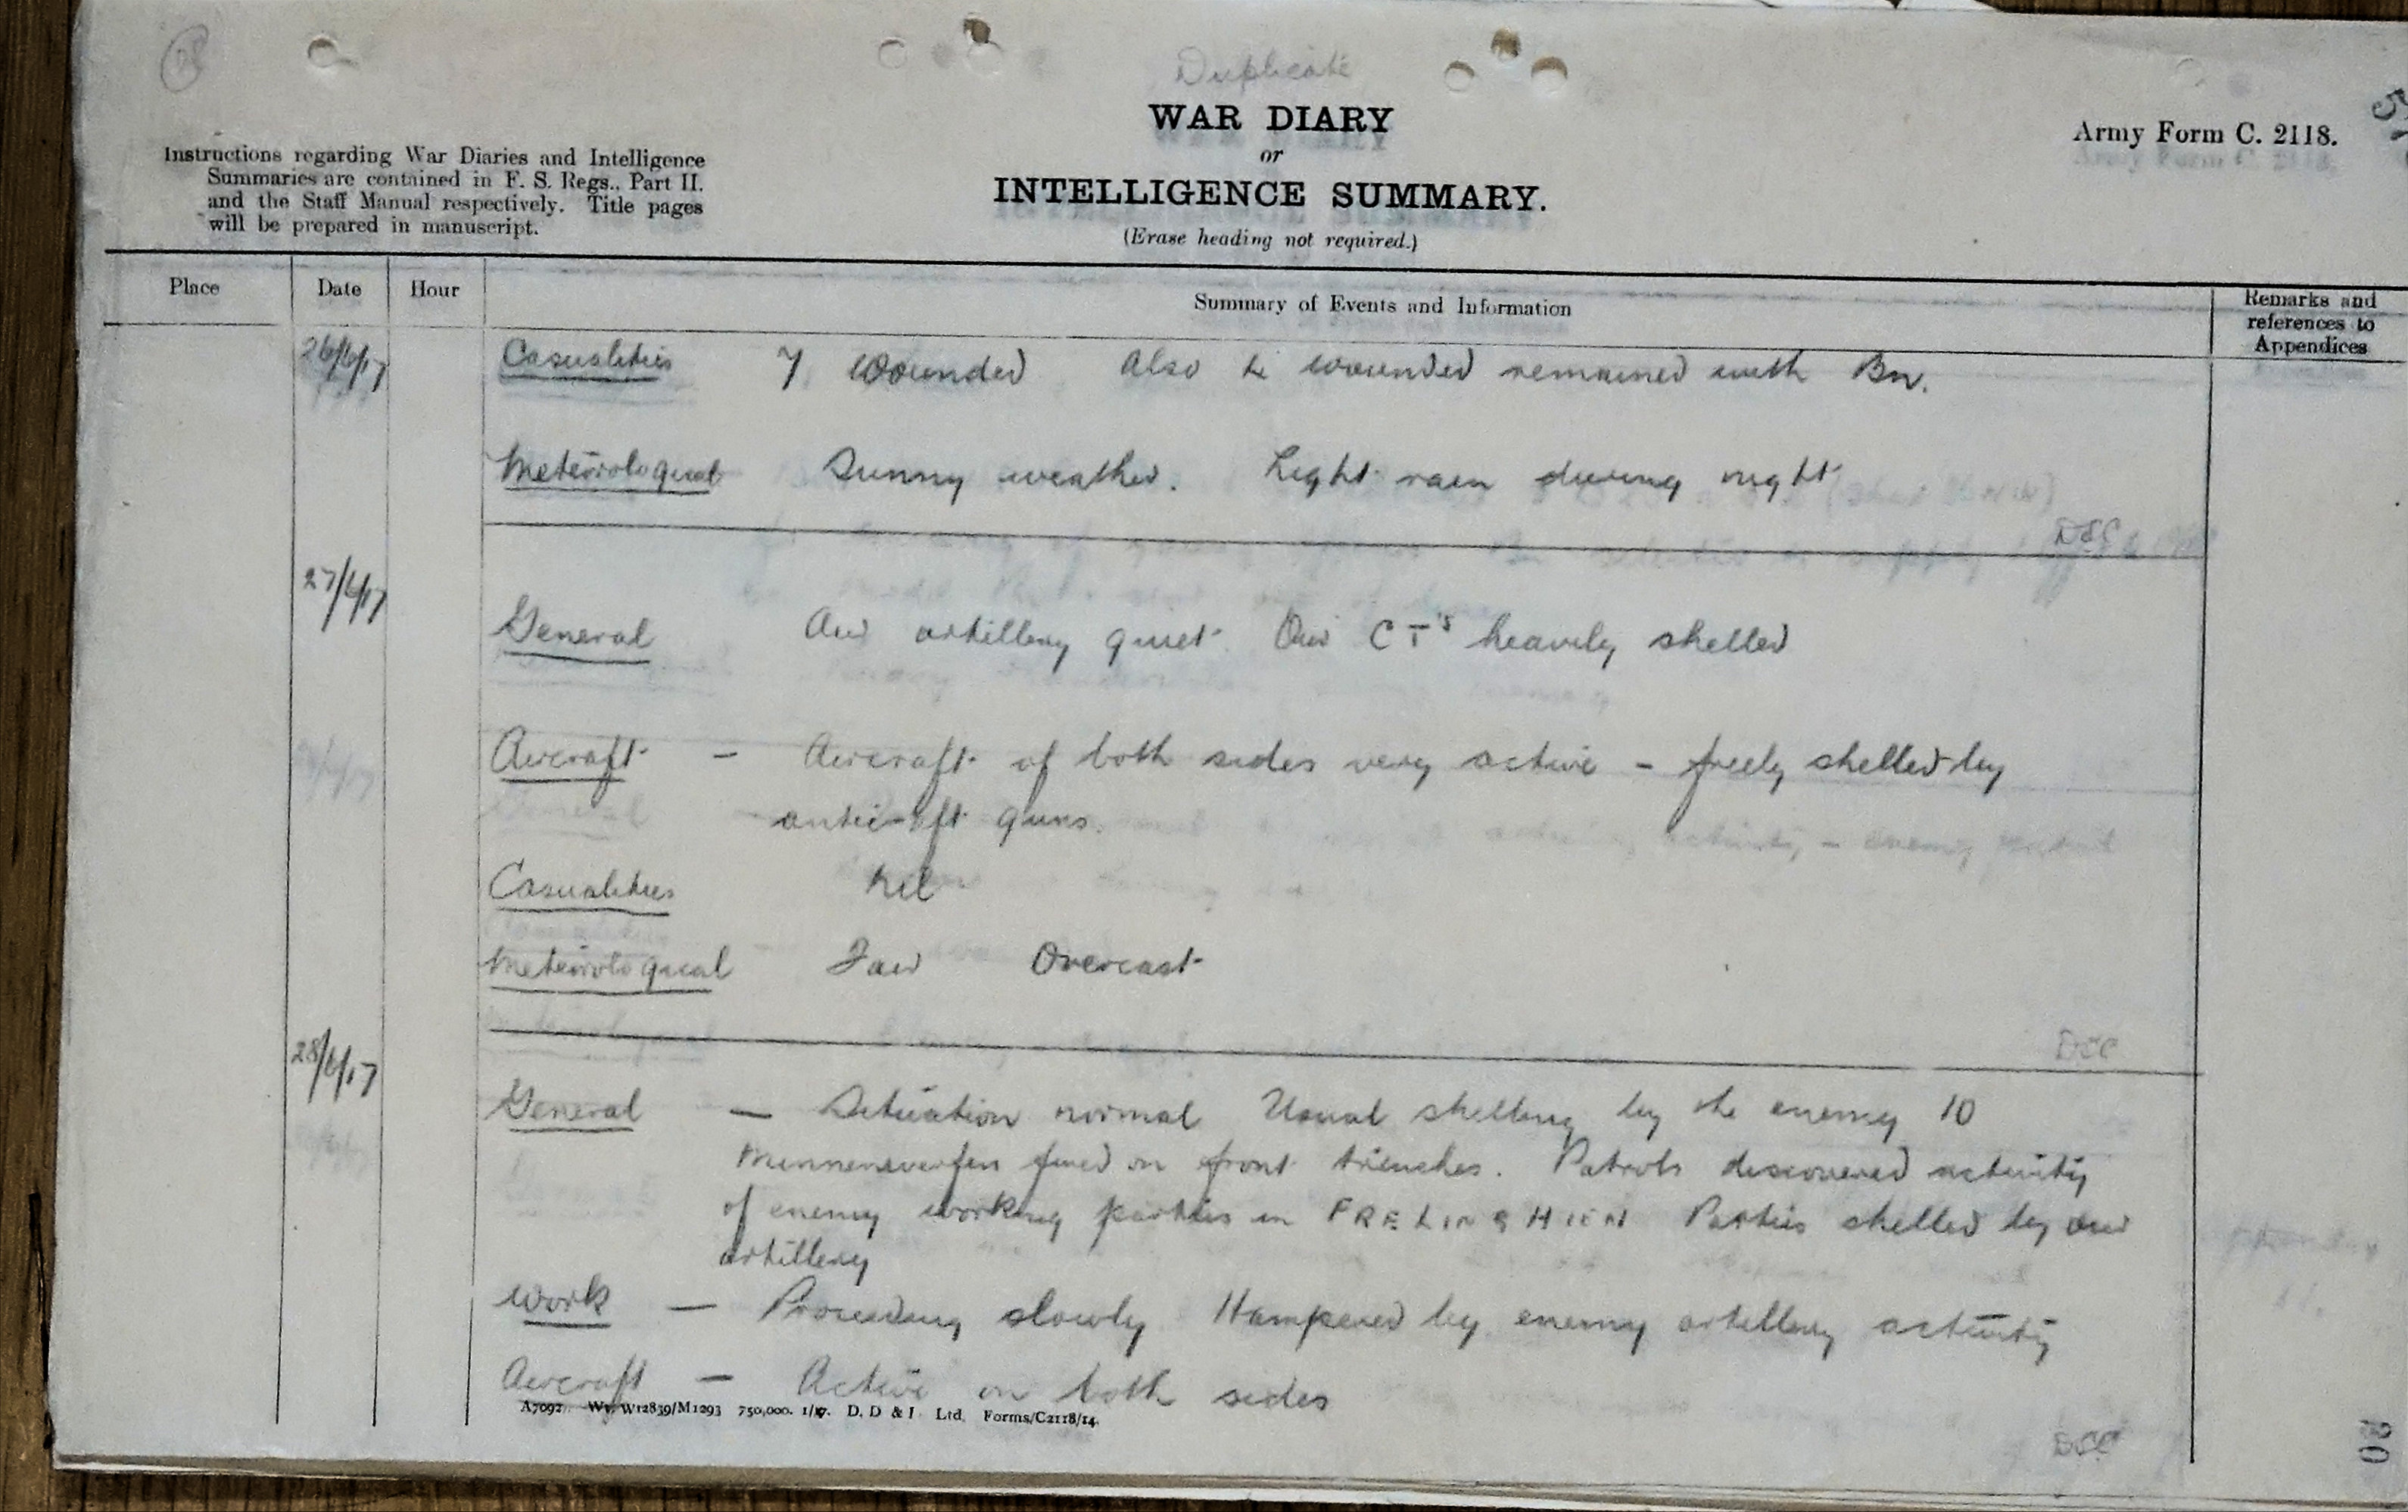 Duplicate
WAR DIARY
or
INTELLIGENCE SUMMARY.
(Erase heading not required.)
Army Form C. 2118.
Instructions regarding War Diaries and Intelligence
Summaries are contained in F. S. Regs., Part II.
and the Staff Manual respectively. Title pages
will be prepared in manuscript.
Place Date Hour Summary of Events and Information Remarks and references to Appendices
26/6/17 Casualties 7 Wounded Also 4 wounded remained with Bn.
Meteorological Sunny weather. Light rain during night
27/6/17
General Our artillery quiet. Our CT's heavily shelled
Aircraft - Aircraft of both sides very active - freely shelled by
anti-cft guns.
Casualties Nil
Meteorological Fair Overcast
28/6/17
General — Situation normal Usual shelling by the enemy 10
fired on front trenches. Patrols discovered activity
of enemy working parties in FRELINGHIEN Parties shelled by our
artillery
Work — Proceeding slowly Hampered by enemy artillery activity
Aircraft — Active on both sides
A7092 Wt. W12839/M1293 750,000. 1/17. D. D & I Ltd. Forms/C2118/14.